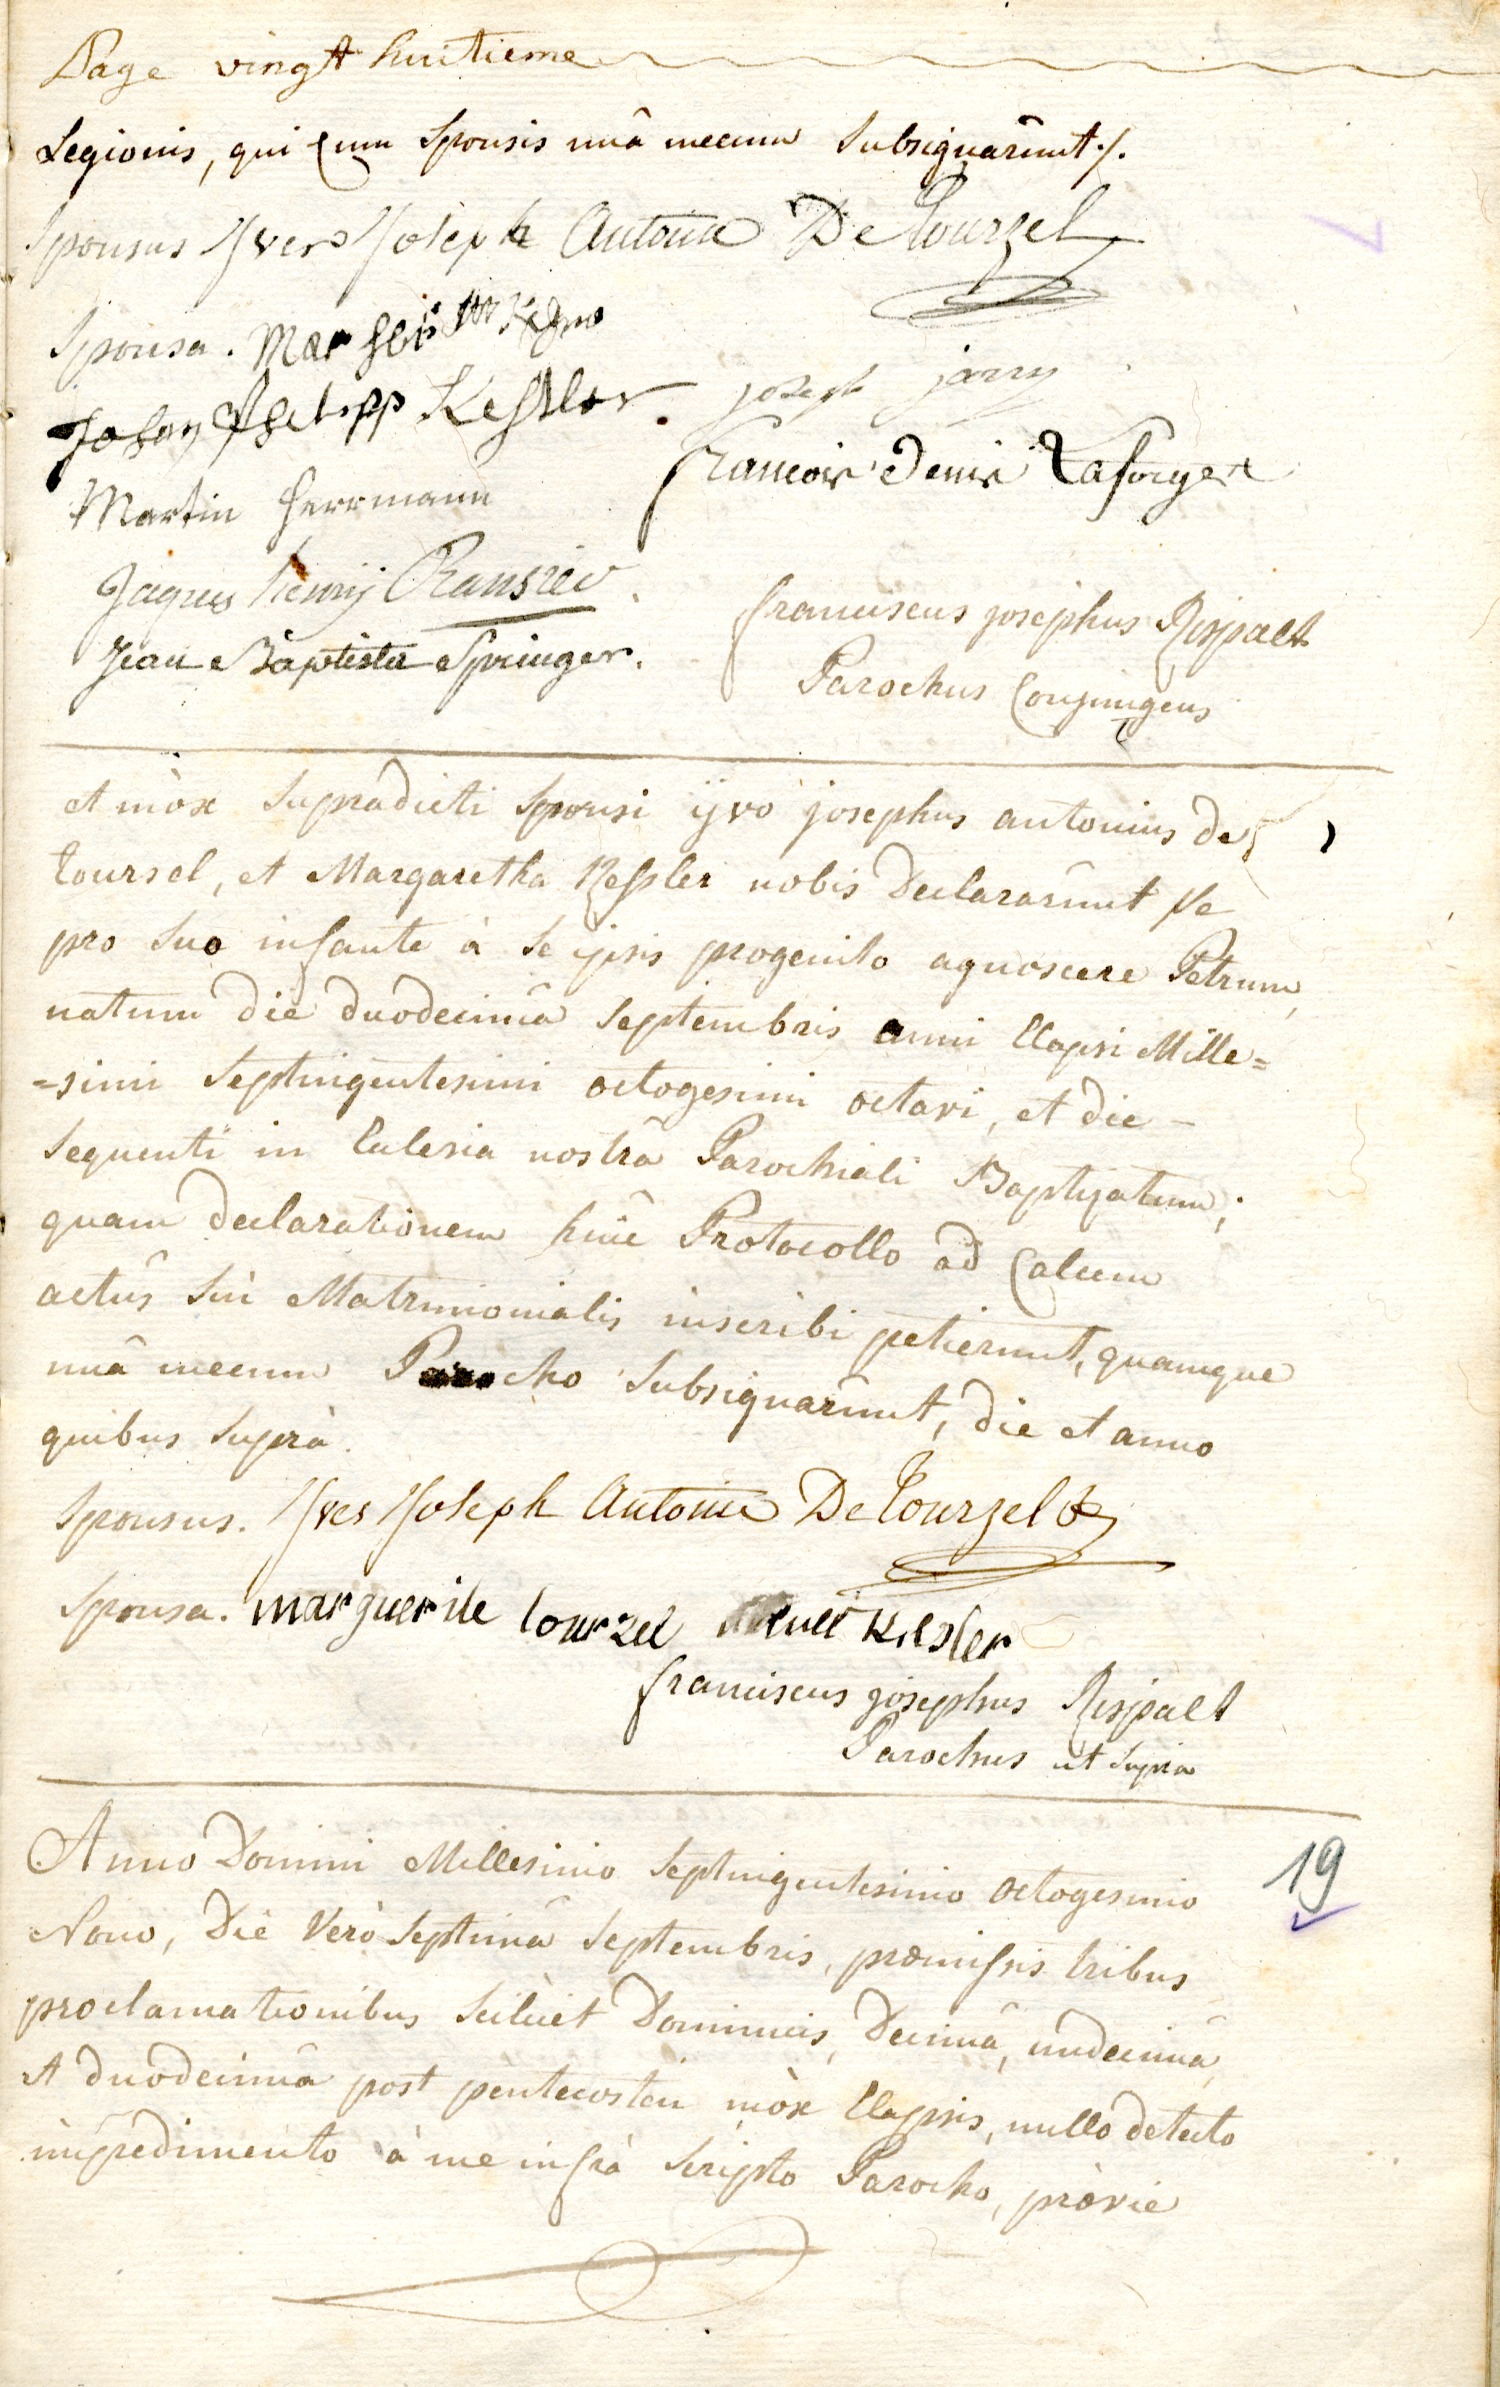 Page vingt huitieme
Legionis, qui Cum Sponsis unâ mecum Subsignârunt ./.
Sponsus Yves Joseph Antoine DeTourzel
Sponsa.
Johan Philipp Keßler. joseph jarry
Martin Herrmann francois denis Laforge
Jaques henrij
Jean Baptiste Springer. franciscus josephus Rispalt
Parochus Conjungens
et mòx Supradicti Sponsi ijvo josephus antonius de
Toursel, et Margaretha Keßler nobis Declarârunt Se
pro Suo infante à Se ipsis progenito agnoscere Petrum,
natum die duodecimâ Septembris anni Elapsi Mille=
=simi Septingentesimi octogesimi octavi, et die -
Sequenti in Eclesia nostrâ Parochiali Baptizatum;
quam declarationem huic Protocollo ad Calcem
actûs Sui Matrimonialis inscribi petierunt, quamque
unâ mecum Parocho Subsignârunt, die et anno
quibus Suprà.
Sponsus. Yves Joseph Antoine DeTourzel
Sponsa. marguerite tourzel Kesler
franciscus josephus Rispalt
Parochus ut Supra
Anno Domini Millesimo Septingentesimo octogesimo 19
Nono, Die Verò Septimâ Septembris, præmißis tribus
proclamationibus Scilicet Dominicis, Decimâ, undecimâ,
et duodecimâ post pentecosten mòx Elapsis, nullo detecto
impedimento à me infrà Scripto Parocho, prævie